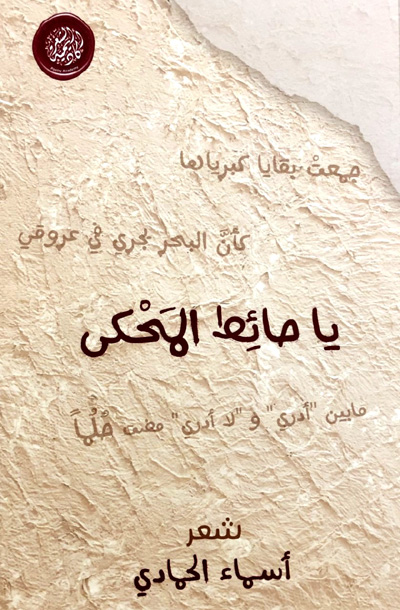 جمعتْ بقايا كبريائها
كأنَّ البحر يجري في عروقي
يا حائِط المَحْكى
مابين "أدري" و "لا أدري" مضت حُلُماً
شعر
أسماء الحمادي